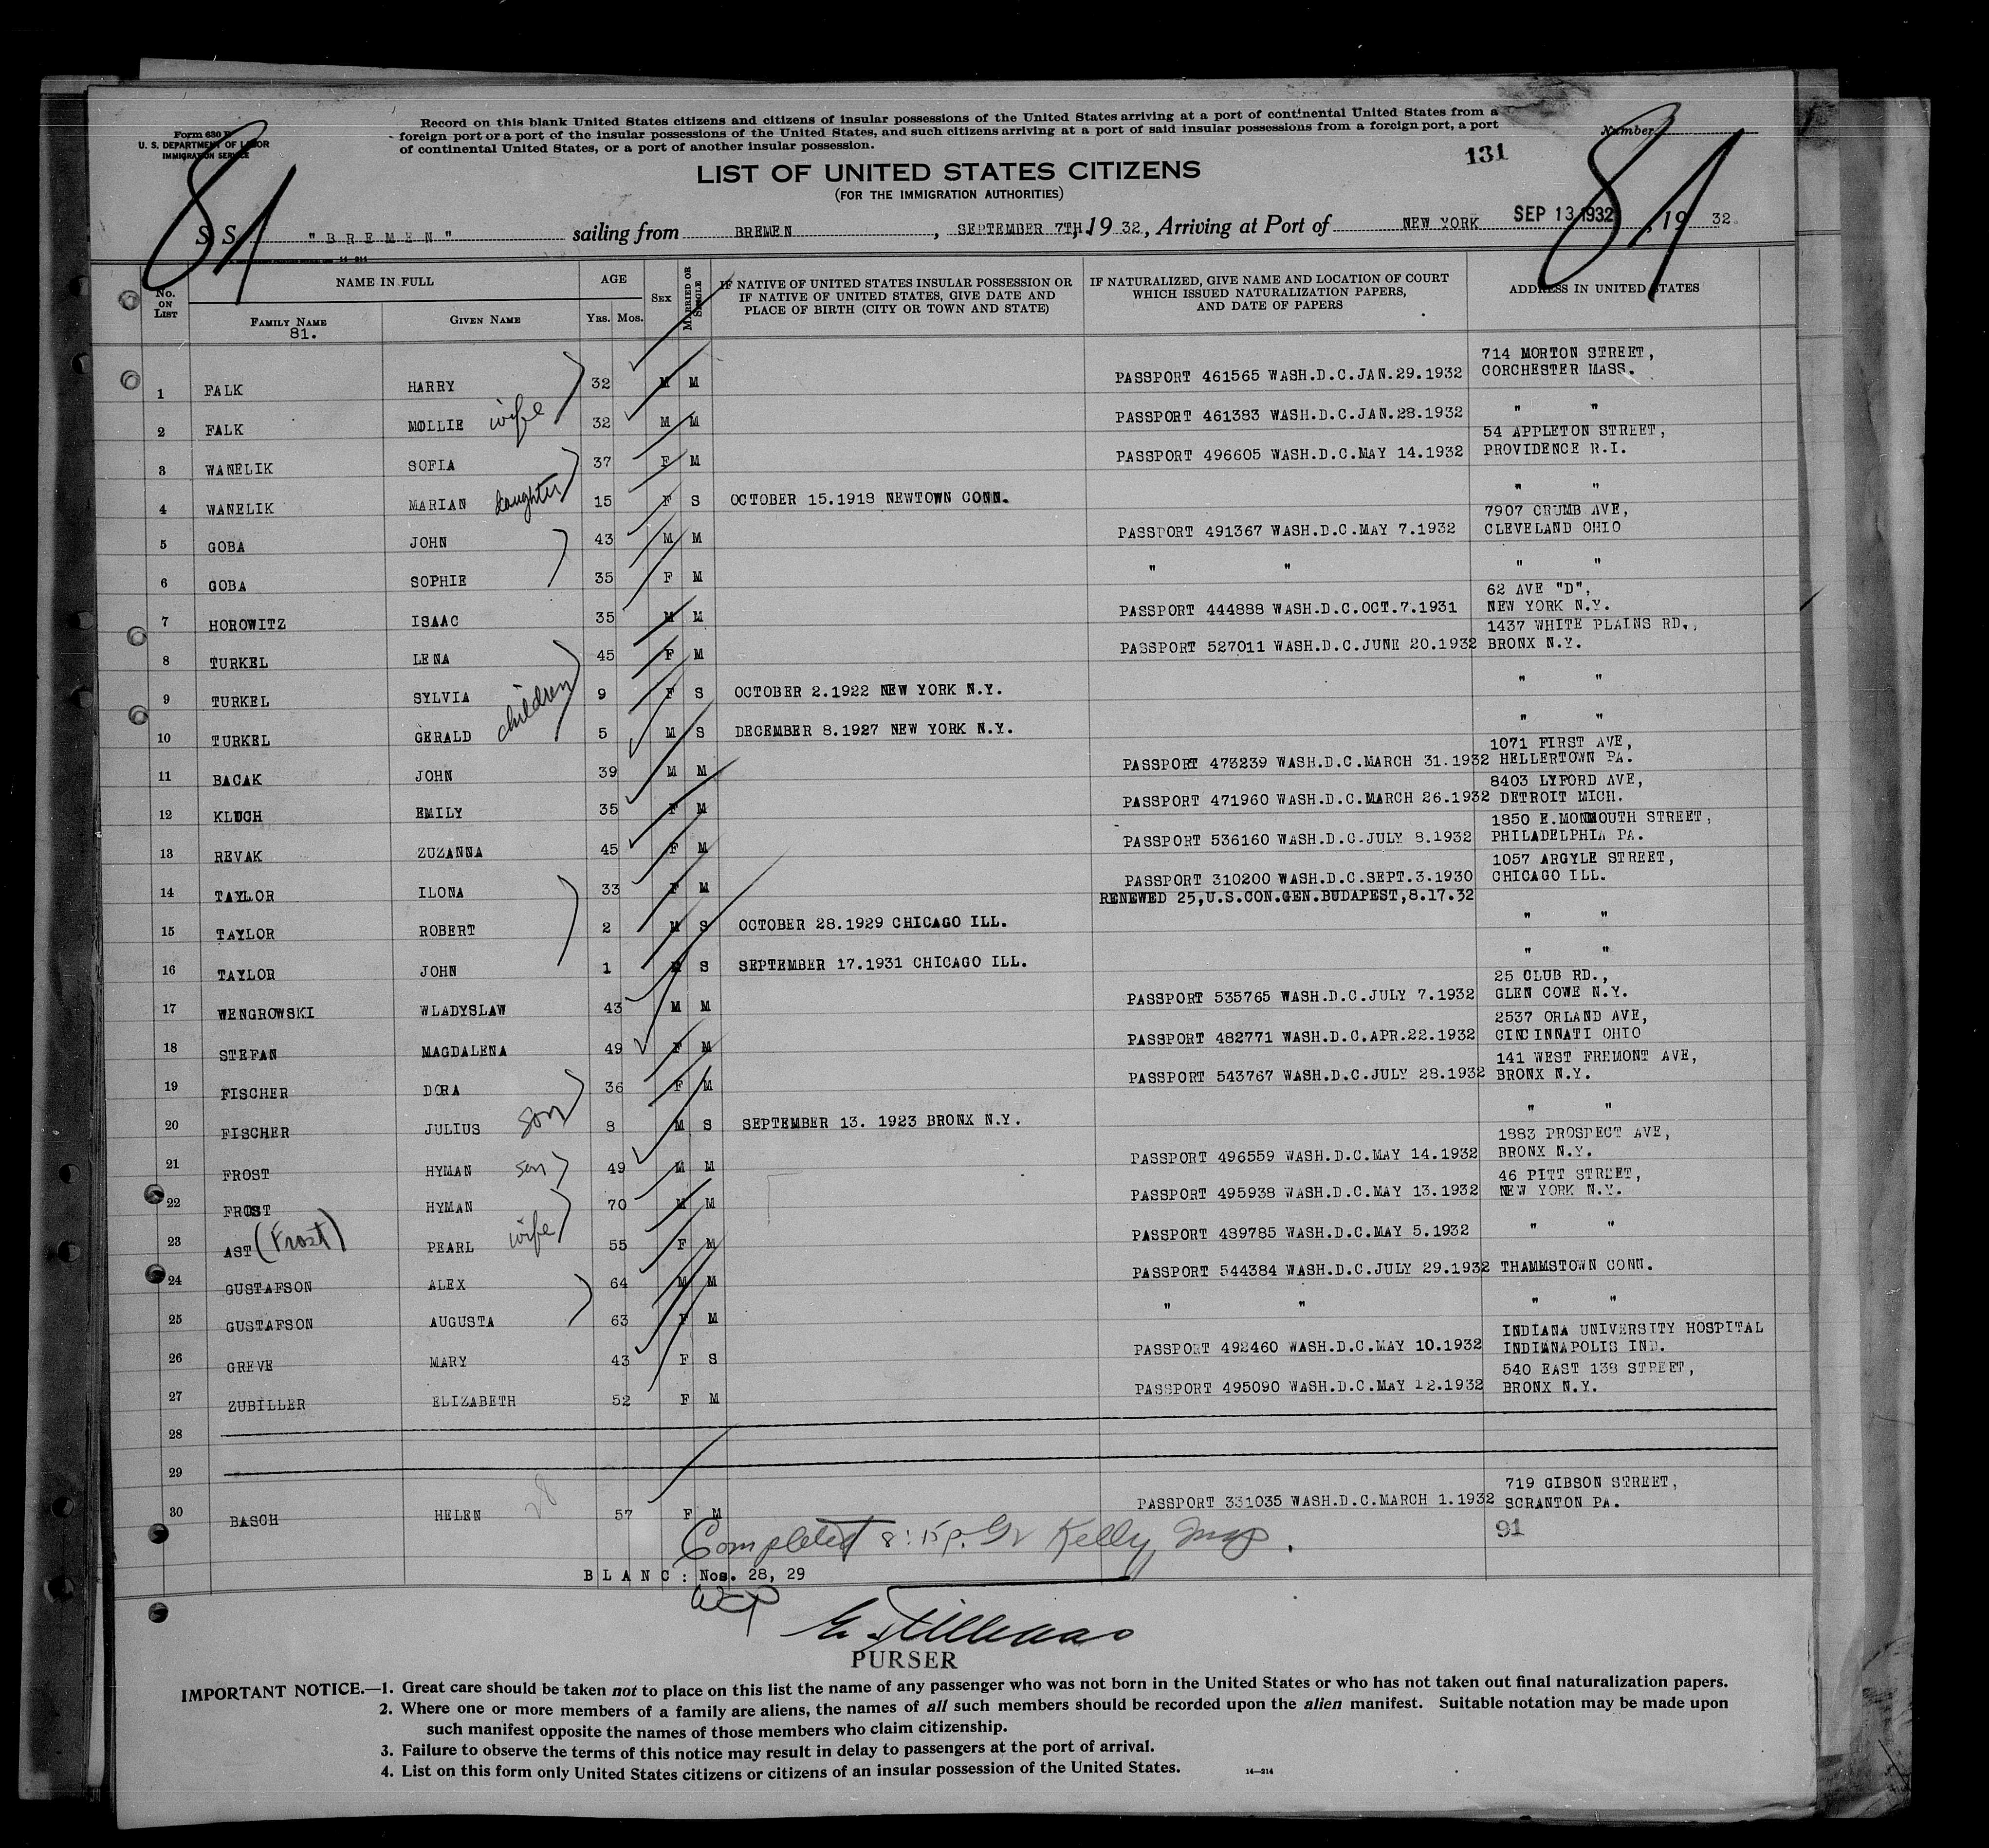 Form 630 B
U. S. DEPARTMENT OF LABOR
IMMIGRATION SERVICE
Record on this blank United States citizens and citizens of insular possessions of the United States arriving at a port of continental United States from a
foreign port or a port of the insular possessions of the United States, and such citizens arriving at a port of said insular possessions from a foreign port, a port
of continental United States, or a port of another insular possession.
Number
131
81
81
LIST OF UNITED STATES CITIZENS
(FOR THE IMMIGRATION AUTHORITIES)
S S "BREMEN" sailing from BREMEN, SEPTEMBER 7TH. 19 32, Arriving at Port of NEW YORK SEP 13 1932, 19 32
14—214
No. ON LIST
NAME IN FULL
FAMILY NAME
81.
GIVEN NAME
AGE
YRS. MOS.
SEX
MARRIED OR SINGLE
IF NATIVE OF UNITED STATES INSULAR POSSESSION OR
IF NATIVE OF UNITED STATES, GIVE DATE AND
PLACE OF BIRTH (CITY OR TOWN AND STATE)
IF NATURALIZED, GIVE NAME AND LOCATION OF COURT
WHICH ISSUED NATURALIZATION PAPERS,
AND DATE OF PAPERS
ADDRESS IN UNITED STATES
714 MORTON STREET,
1 FALK HARRY 32 M M PASSPORT 461565 WASH.D.C.JAN.29.1932 CORCHESTER MASS.
2 FALK MOLLIE wife 32 M M PASSPORT 461383 WASH.D.C.JAN.28.1932 " "
54 APPLETON STREET,
3 WANELIK SOFIA 37 F M PASSPORT 496605 WASH.D.C.MAY 14.1932 PROVIDENCE R.I.
4 WANELIK MARIAN daughter 15 F S OCTOBER 15.1918 NEWTOWN CONN. " "
7907 CRUMB AVE,
5 GOBA JOHN 43 M M PASSPORT 491367 WASH.D.C.MAY 7.1932 CLEVELAND OHIO
6 GOBA SOPHIE 35 F M " " " "
62 AVE "D",
7 HOROWITZ ISAAC 35 M M PASSPORT 444888 WASH.D.C.OCT.7.1931 NEW YORK N.Y.
1437 WHITE PLAINS RD.,
8 TURKEL LENA 45 F M PASSPORT 527011 WASH.D.C.JUNE 20.1932 BRONX N.Y.
9 TURKEL SYLVIA 9 F S OCTOBER 2.1922 NEW YORK N.Y. " "
10 TURKEL GERALD children 5 M S DECEMBER 8.1927 NEW YORK N.Y. " "
1071 FIRST AVE,
11 BACAK JOHN 39 M M PASSPORT 473239 WASH.D.C.MARCH 31.1932 HELLERTOWN PA.
8403 LYFORD AVE,
12 KLUCH EMILY 35 F M PASSPORT 471960 WASH.D.C.MARCH 26.1932 DETROIT MICH.
1850 E.MONMOUTH STREET,
13 REVAK ZUZANNA 45 F M PASSPORT 536160 WASH.D.C.JULY 8.1932 PHILADELPHIA PA.
1057 ARGYLE STREET,
14 TAYLOR ILONA 33 F M PASSPORT 310200 WASH.D.C.SEPT.3.1930 CHICAGO ILL.
RENEWED 25,U.S.CON.GEN.BUDAPEST,8.17.32
15 TAYLOR ROBERT 2 M S OCTOBER 28.1929 CHICAGO ILL. " "
16 TAYLOR JOHN 1 M S SEPTEMBER 17.1931 CHICAGO ILL. " "
25 CLUB RD.,
17 WENGROWSKI WLADYSLAW 43 M M PASSPORT 535765 WASH.D.C.JULY 7.1932 GLEN COWE N.Y.
2537 ORLAND AVE,
18 STEFAN MAGDALENA 49 F M PASSPORT 482771 WASH.D.C.APR.22.1932 CINCINNATI OHIO
141 WEST FREMONT AVE,
19 FISCHER DORA 36 F M PASSPORT 543767 WASH.D.C.JULY 28.1932 BRONX N.Y.
20 FISCHER JULIUS son 8 M S SEPTEMBER 13. 1923 BRONX N.Y. " "
1883 PROSPECT AVE,
21 FROST HYMAN son 49 M M PASSPORT 496559 WASH.D.C.MAY 14.1932 BRONX N.Y.
46 PITT STREET,
22 FROST HYMAN 70 M M PASSPORT 495938 WASH.D.C.MAY 13.1932 NEW YORK N.Y.
23 AST (Frost) PEARL wife 55 F M PASSPORT 489785 WASH.D.C.MAY 5.1932 " "
24 GUSTAFSON ALEX 64 M M PASSPORT 544384 WASH.D.C.JULY 29.1932 THAMMSTOWN CONN.
25 GUSTAFSON AUGUSTA 63 F M " " " "
INDIANA UNIVERSITY HOSPITAL
26 GREVE MARY 43 F S PASSPORT 492460 WASH.D.C.MAY 10.1932 INDIANAPOLIS IND.
540 EAST 138 STREET,
27 ZUBILLER ELIZABETH 52 F M PASSPORT 495090 WASH.D.C.MAY 12.1932 BRONX N.Y.
28
29
719 GIBSON STREET,
30 BASCH HELEN 28 57 F M PASSPORT 331035 WASH.D.C.MARCH 1.1932 SCRANTON PA.
91
Completed 8:15 p. Kelly
BLANC: Nos. 28, 29
PURSER
IMPORTANT NOTICE.—1. Great care should be taken not to place on this list the name of any passenger who was not born in the United States or who has not taken out final naturalization papers.
2. Where one or more members of a family are aliens, the names of all such members should be recorded upon the alien manifest. Suitable notation may be made upon
such manifest opposite the names of those members who claim citizenship.
3. Failure to observe the terms of this notice may result in delay to passengers at the port of arrival.
4. List on this form only United States citizens or citizens of an insular possession of the United States.
14—214